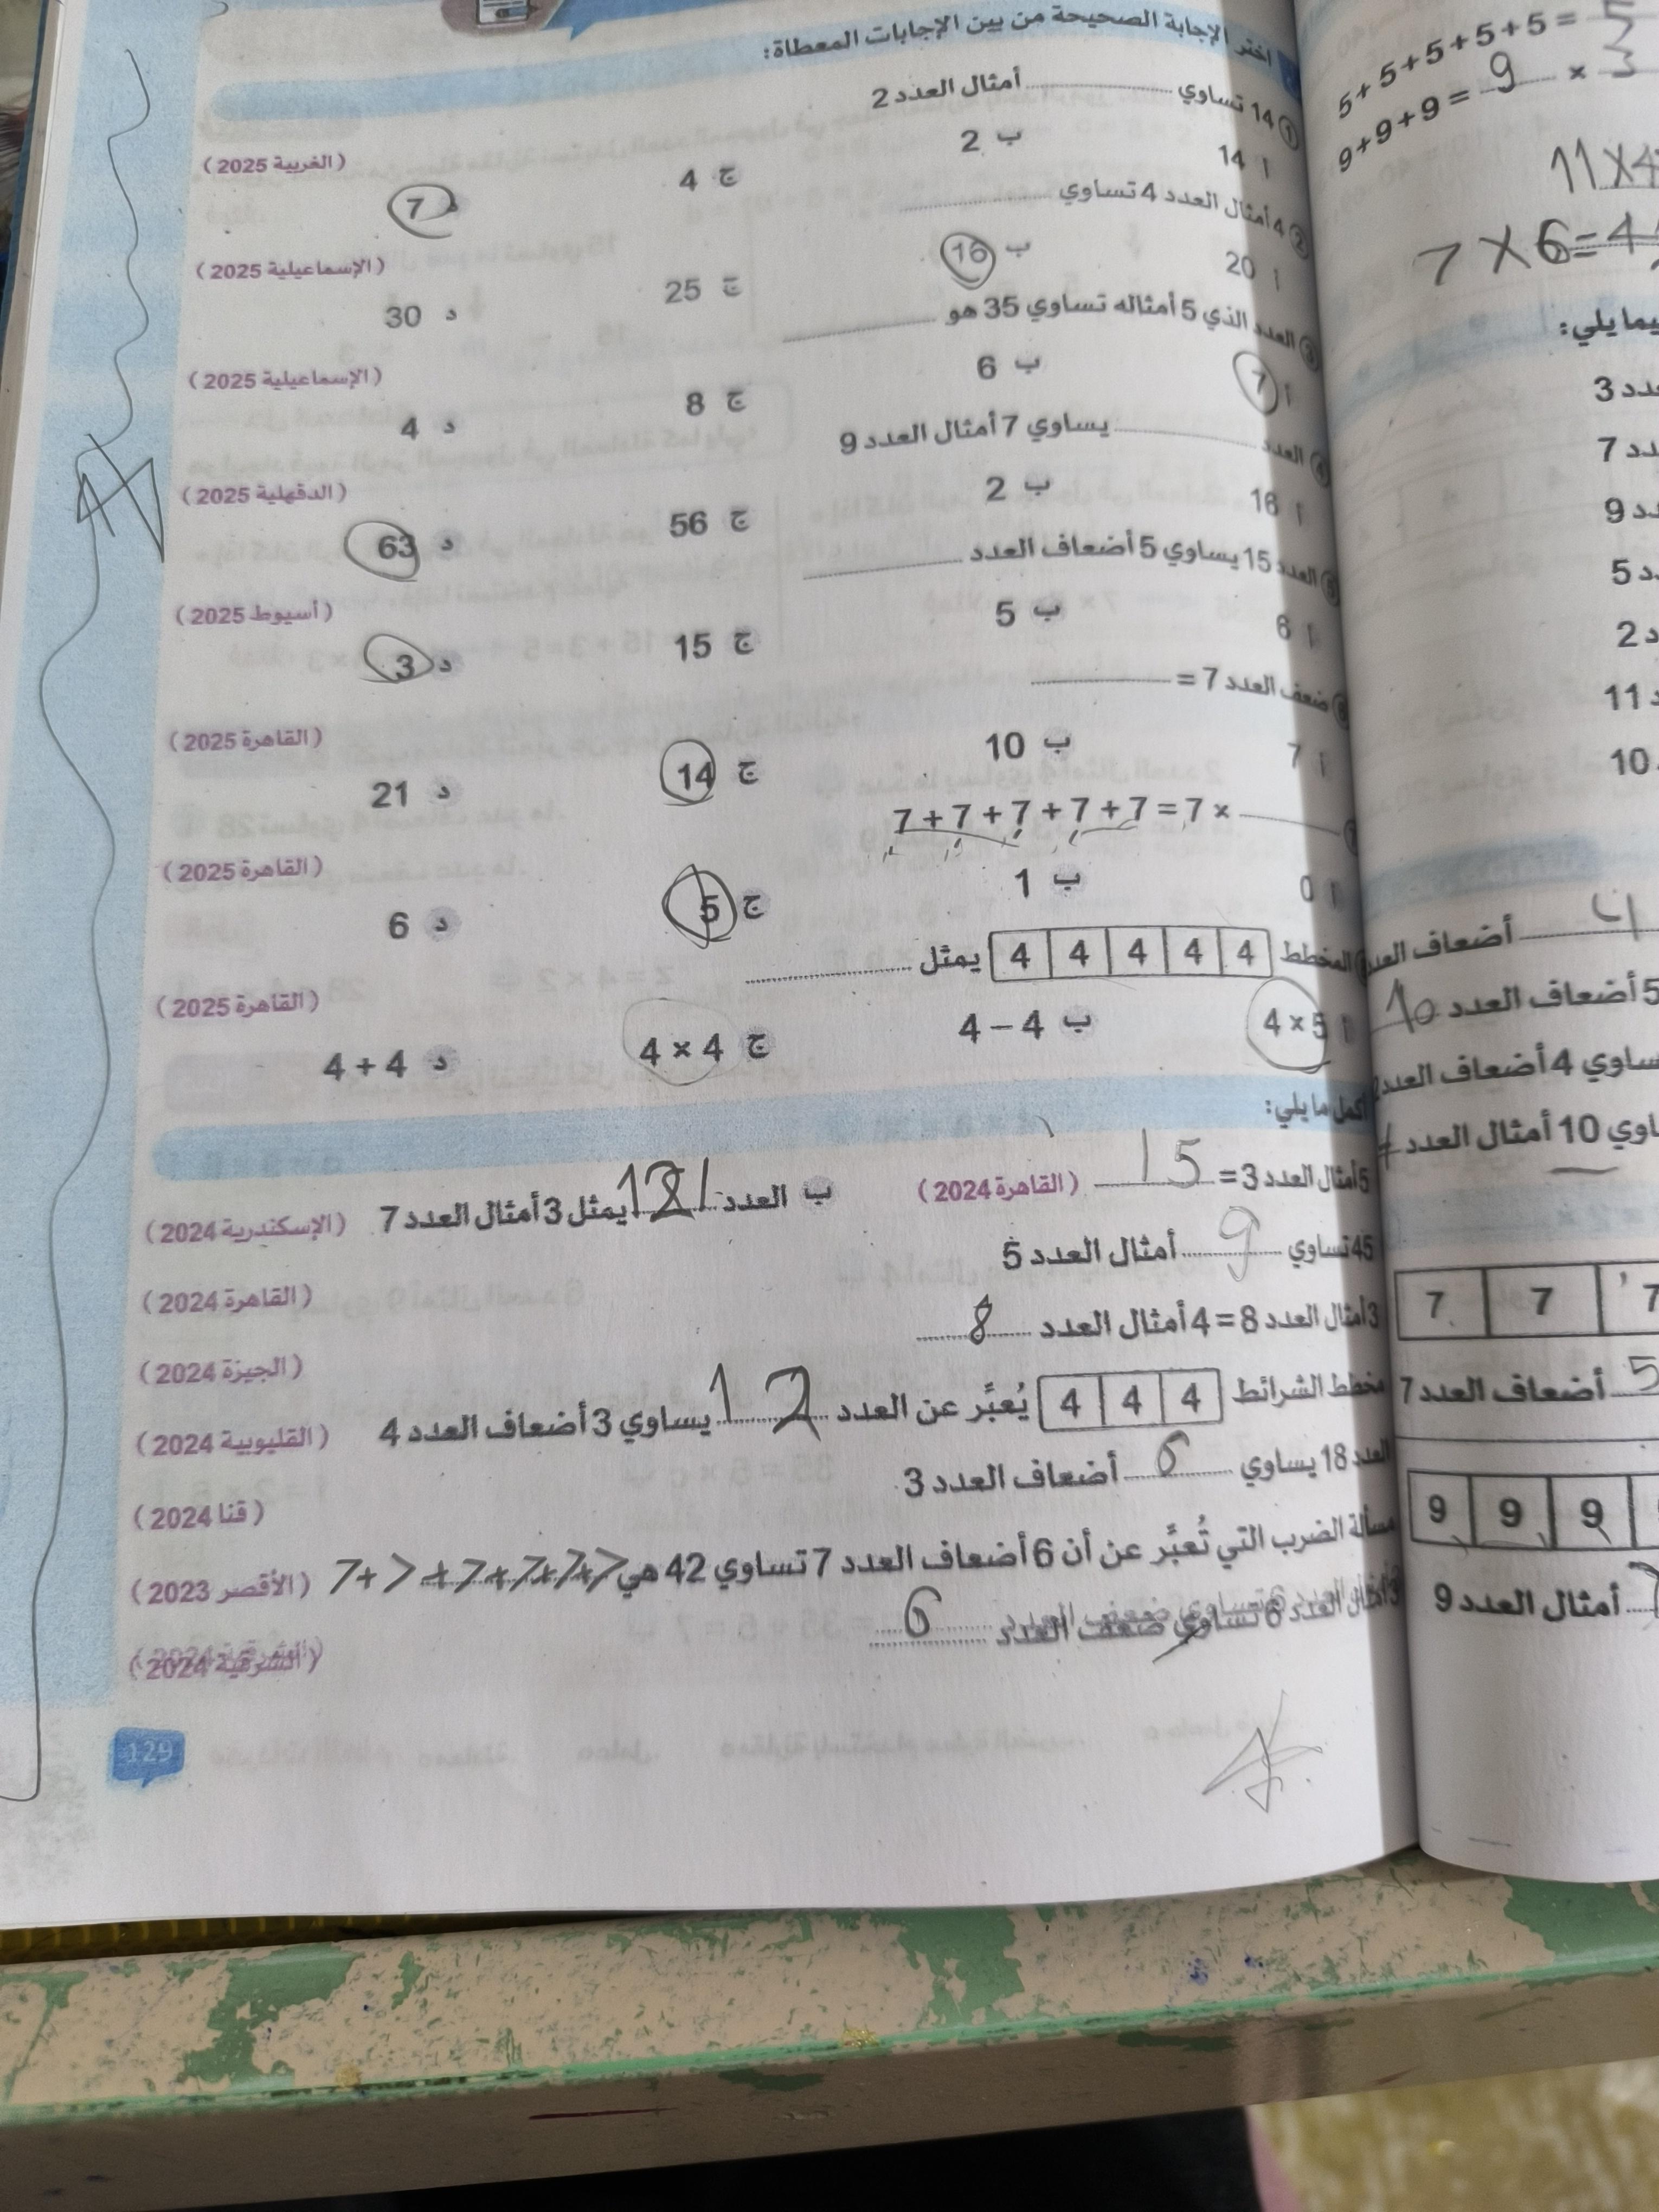 اختر الإجابة الصحيحة من بين الإجابات المعطاة:
① 14 تساوي ............ أمثال العدد 2 (الغربية 2025)
أ 14 ب 2 ج 4 د 7
② 4 أمثال العدد 4 تساوي ............ (الإسماعيلية 2025)
أ 20 ب 16 ج 25 د 30
③ العدد الذي 5 أمثاله تساوي 35 هو ............ (الإسماعيلية 2025)
أ 7 ب 6 ج 8 د 4
④ العدد ............ يساوي 7 أمثال العدد 9 (الدقهلية 2025)
أ 16 ب 2 ج 56 د 63
⑤ العدد 15 يساوي 5 أضعاف العدد ............ (أسيوط 2025)
أ 6 ب 5 ج 15 د 3
⑥ ضعف العدد 7 = ............ (القاهرة 2025)
أ 7 ب 10 ج 14 د 21
7 + 7 + 7 + 7 + 7 = 7 × ............ (القاهرة 2025)
أ 0 ب 1 ج 5 د 6
المخطط 4 4 4 4 4 يمثل ............ (القاهرة 2025)
أ 4 × 5 ب 4 – 4 ج 4 × 4 د 4 + 4
أكمل ما يلي:
5 أمثال العدد 3 = 15 (القاهرة 2024) ب العدد يمثل 3 أمثال العدد 7 (الإسكندرية 2024)
45 تساوي 9 أمثال العدد 5 (القاهرة 2024)
3 أمثال العدد 8 = 4 أمثال العدد 8 (الجيزة 2024)
مخطط الشرائط 4 4 4 يُعبِّر عن العدد 12 يساوي 3 أضعاف العدد 4 (القليوبية 2024)
العدد 18 يساوي 6 أضعاف العدد 3 (قنا 2024)
مسألة الضرب التي تُعبِّر عن أن 6 أضعاف العدد 7 تساوي 42 هي 7+7+7+7+7+7 (الأقصر 2023)
أمثال العدد 6 تساوي ضعف العدد 6 (الشرقية 2024)
129
5 + 5 + 5 + 5 + 5 =
9 + 9 + 9 = 9 × 3
11 × 4
7 × 6 =
يما يلي:
3
7
9
5
2
11
10
أضعاف العدد
5 أضعاف العدد 10
ساوي 4 أضعاف العدد
اوي 10 أمثال العدد
7 7 7
5 أضعاف العدد 7
9 9 9
أمثال العدد 9